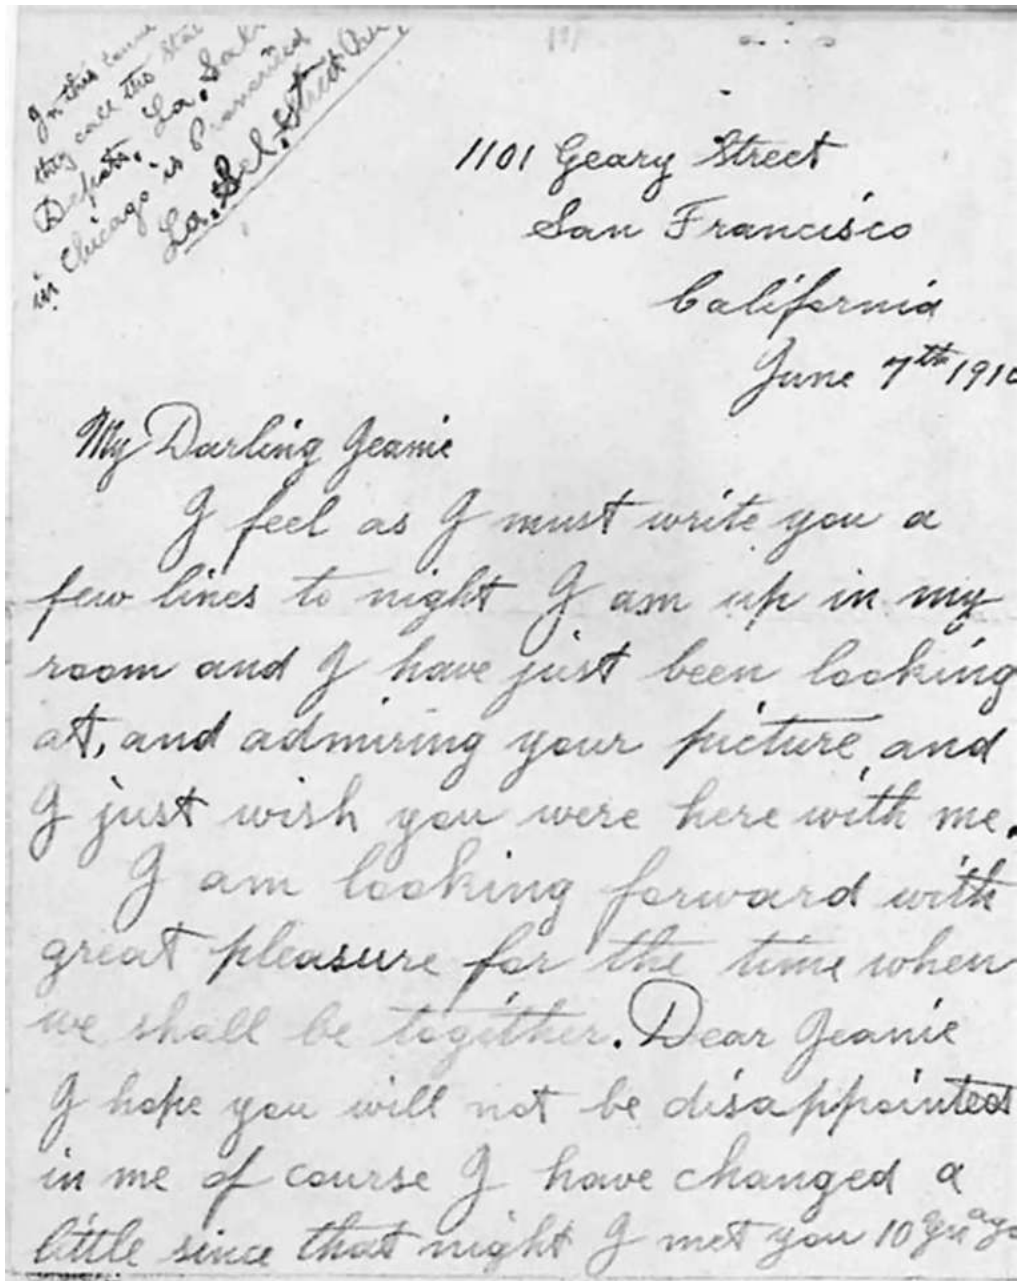 In this
they call the
Depots. La. Salle
in Chicago is Pronounced
La. Sel. Street
1101 Geary Street
San Francisco
California
June 7th 1910
My Darling Jeanie
I feel as I must write you a
few lines to night I am up in my
room and I have just been looking
at, and admiring your picture, and
I just wish you were here with me.
I am looking forward with
great pleasure for the time when
we shall be together. Dear Jeanie
I hope you will not be disappointed
in me of course I have changed a
little since that night I met you 10 yrs ago